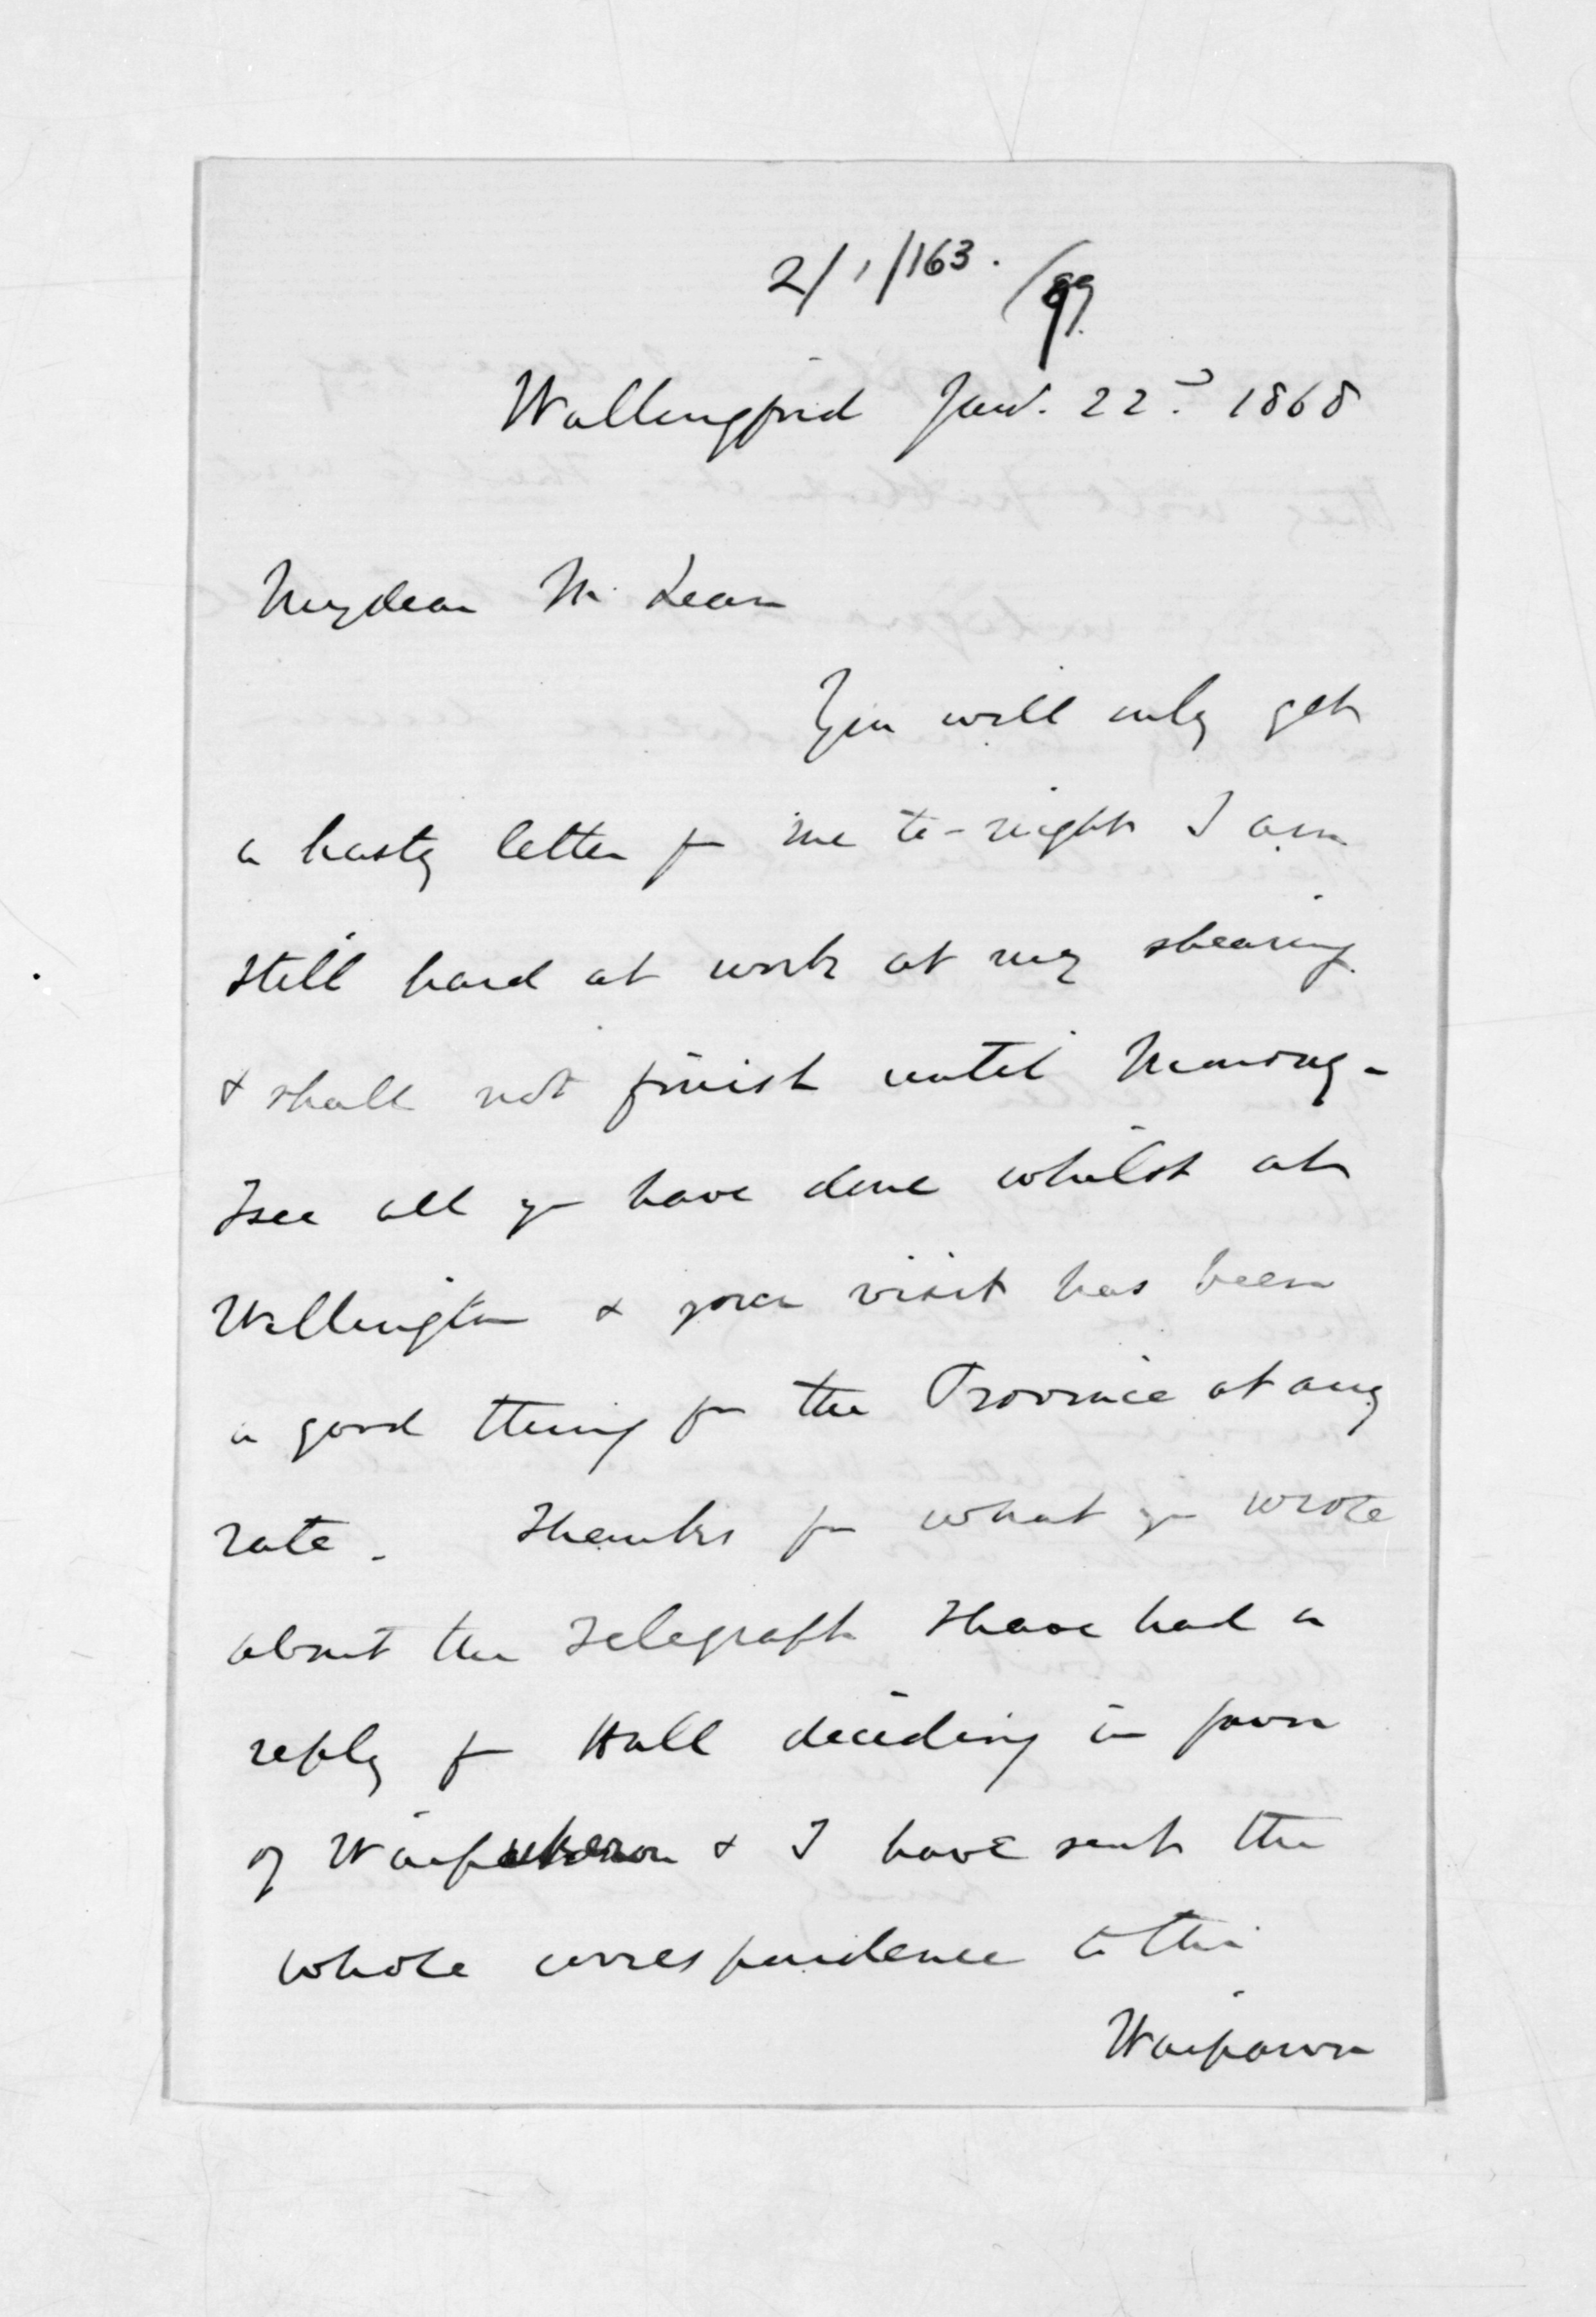 2/1/163. /89
Wallingford Jany. 22d. 1868
My dear McLean
You will only get
a hasty letter fr me to-night I am
still hard at work at my shearing
& shall not finish until Monday -
I see all yu have done whilst at
Wellington & your visit has been
a good thing for the Province at any
rate. Thanks for what yu wrote
about the Telegraph I have had a
reply fr Hall deciding in favor
of Waipukurau & I have sent the
whole correspondence to the
Waipawa